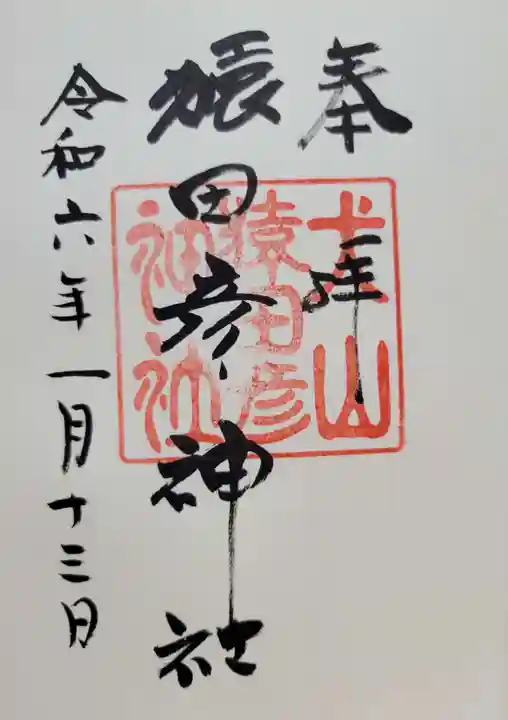 奉拝
猿田彦神社
令和六年一月十三日
犬山
猿田彦
神社